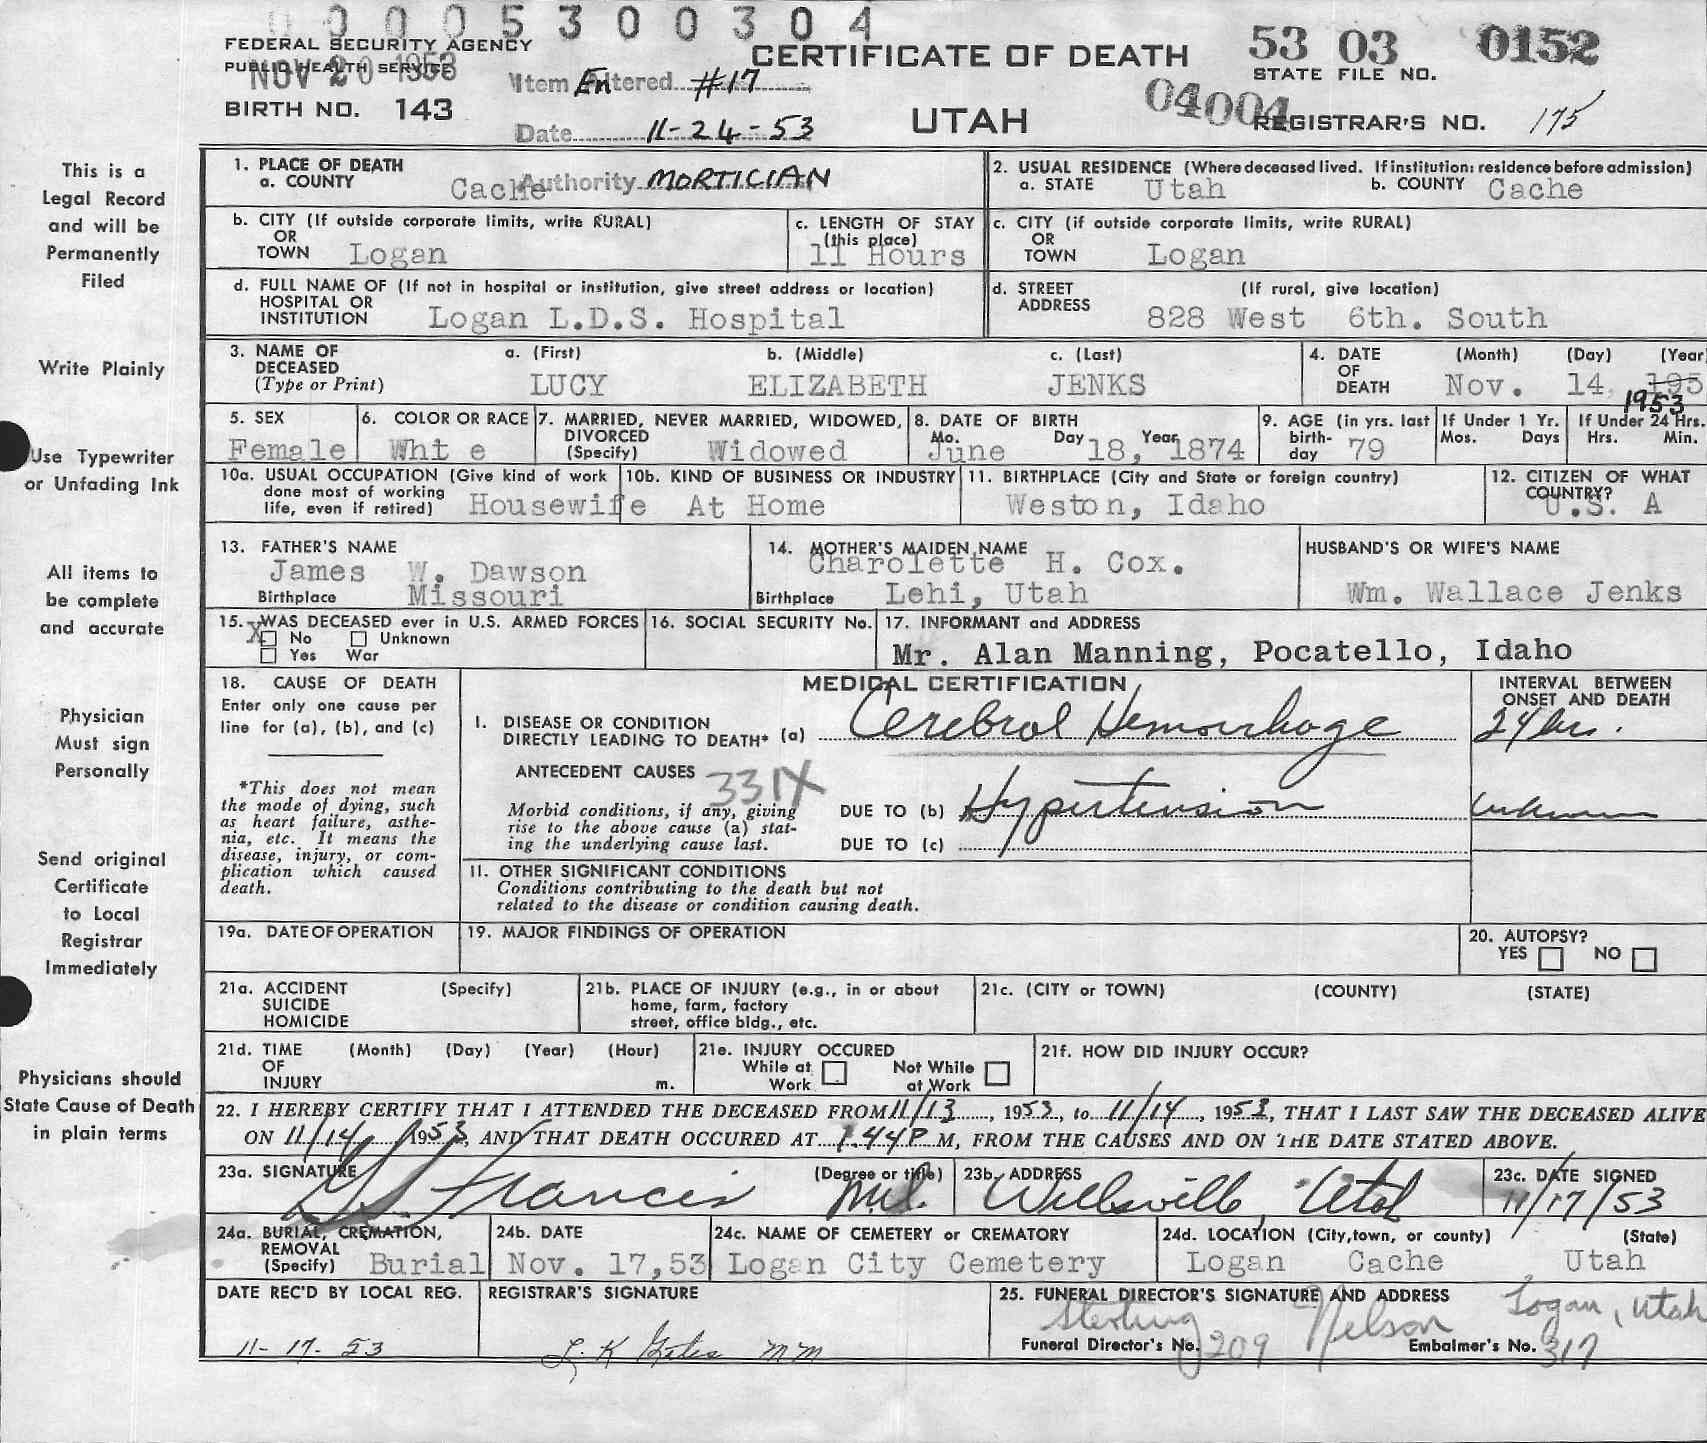 0 0 0 0 5 3 0 0 3 0 4
FEDERAL SECURITY AGENCY
PUBLIC HEALTH SERVICE
NOV 20 1953
BIRTH NO. 143
Item Entered #17
Date 11-24-53
Authority MORTICIAN
CERTIFICATE OF DEATH
UTAH
53 03 0152
STATE FILE NO.
04004
REGISTRAR'S NO. 175
This is a
Legal Record
and will be
Permanently
Filed
Write Plainly
Use Typewriter
or Unfading Ink
All items to
be complete
and accurate
Physician
Must sign
Personally
Send original
Certificate
to Local
Registrar
Immediately
Physicians should
State Cause of Death
in plain terms
1. PLACE OF DEATH
a. COUNTY Cache
2. USUAL RESIDENCE (Where deceased lived. If institution: residence before admission)
a. STATE Utah b. COUNTY Cache
b. CITY (If outside corporate limits, write RURAL)
OR
TOWN Logan
c. LENGTH OF STAY
(this place)
11 Hours
c. CITY (if outside corporate limits, write RURAL)
OR
TOWN Logan
d. FULL NAME OF (If not in hospital or institution, give street address or location)
HOSPITAL OR
INSTITUTION Logan L.D.S. Hospital
d. STREET (If rural, give location)
ADDRESS 828 West 6th. South
3. NAME OF a. (First) b. (Middle) c. (Last)
DECEASED
(Type or Print) LUCY ELIZABETH JENKS
4. DATE (Month) (Day) (Year
OF
DEATH Nov. 14, 195
1953
5. SEX
Female
6. COLOR OR RACE
Whit e
7. MARRIED, NEVER MARRIED, WIDOWED,
DIVORCED
(Specify) Widowed
8. DATE OF BIRTH
Mo. Day Year
June 18, 1874
9. AGE (in yrs. last
birth-
day 79
If Under 1 Yr.
Mos. Days
If Under 24 Hrs.
Hrs. Min.
10a. USUAL OCCUPATION (Give kind of work
done most of working
life, even if retired) Housewife
10b. KIND OF BUSINESS OR INDUSTRY
At Home
11. BIRTHPLACE (City and State or foreign country)
Weston, Idaho
12. CITIZEN OF WHAT
COUNTRY?
U.S. A
13. FATHER'S NAME
James W. Dawson
Birthplace Missouri
14. MOTHER'S MAIDEN NAME
Charolette H. Cox.
Birthplace Lehi, Utah
HUSBAND'S OR WIFE'S NAME
Wm. Wallace Jenks
15. WAS DECEASED ever in U.S. ARMED FORCES
X No Unknown
Yes War
16. SOCIAL SECURITY No.
17. INFORMANT and ADDRESS
Mr. Alan Manning, Pocatello, Idaho
18. CAUSE OF DEATH
Enter only one cause per
line for (a), (b), and (c)
*This does not mean
the mode of dying, such
as heart failure, asthe-
nia, etc. It means the
disease, injury, or com-
plication which caused
death.
MEDICAL CERTIFICATION
INTERVAL BETWEEN
ONSET AND DEATH
I. DISEASE OR CONDITION
DIRECTLY LEADING TO DEATH* (a) Cerebral Hemorrhage 24 hrs.
ANTECEDENT CAUSES 331X
Morbid conditions, if any, giving
rise to the above cause (a) stat-
ing the underlying cause last.
DUE TO (b) Hypertension unknown
DUE TO (c)
II. OTHER SIGNIFICANT CONDITIONS
Conditions contributing to the death but not
related to the disease or condition causing death.
19a. DATE OF OPERATION
19. MAJOR FINDINGS OF OPERATION
20. AUTOPSY?
YES NO
21a. ACCIDENT (Specify)
SUICIDE
HOMICIDE
21b. PLACE OF INJURY (e.g., in or about
home, farm, factory
street, office bldg., etc.
21c. (CITY or TOWN) (COUNTY) (STATE)
21d. TIME (Month) (Day) (Year) (Hour)
OF
INJURY m.
21e. INJURY OCCURED
While at Not While
Work at Work
21f. HOW DID INJURY OCCUR?
22. I HEREBY CERTIFY THAT I ATTENDED THE DECEASED FROM 11/13, 1953, to 11/14, 1953, THAT I LAST SAW THE DECEASED ALIVE
ON 11/14 1953, AND THAT DEATH OCCURED AT 1:44P M, FROM THE CAUSES AND ON THE DATE STATED ABOVE.
23a. SIGNATURE (Degree or title)
Francis M.D.
23b. ADDRESS
Wellsville, Utah
23c. DATE SIGNED
11/17/53
24a. BURIAL, CREMATION,
REMOVAL
(Specify) Burial
24b. DATE
Nov. 17,53
24c. NAME OF CEMETERY or CREMATORY
Logan City Cemetery
24d. LOCATION (City,town, or county) (State)
Logan Cache Utah
DATE REC'D BY LOCAL REG.
11-17-53
REGISTRAR'S SIGNATURE
25. FUNERAL DIRECTOR'S SIGNATURE AND ADDRESS
Sterling Nelson Logan, Utah
Funeral Director's No. 209 Embalmer's No. 317